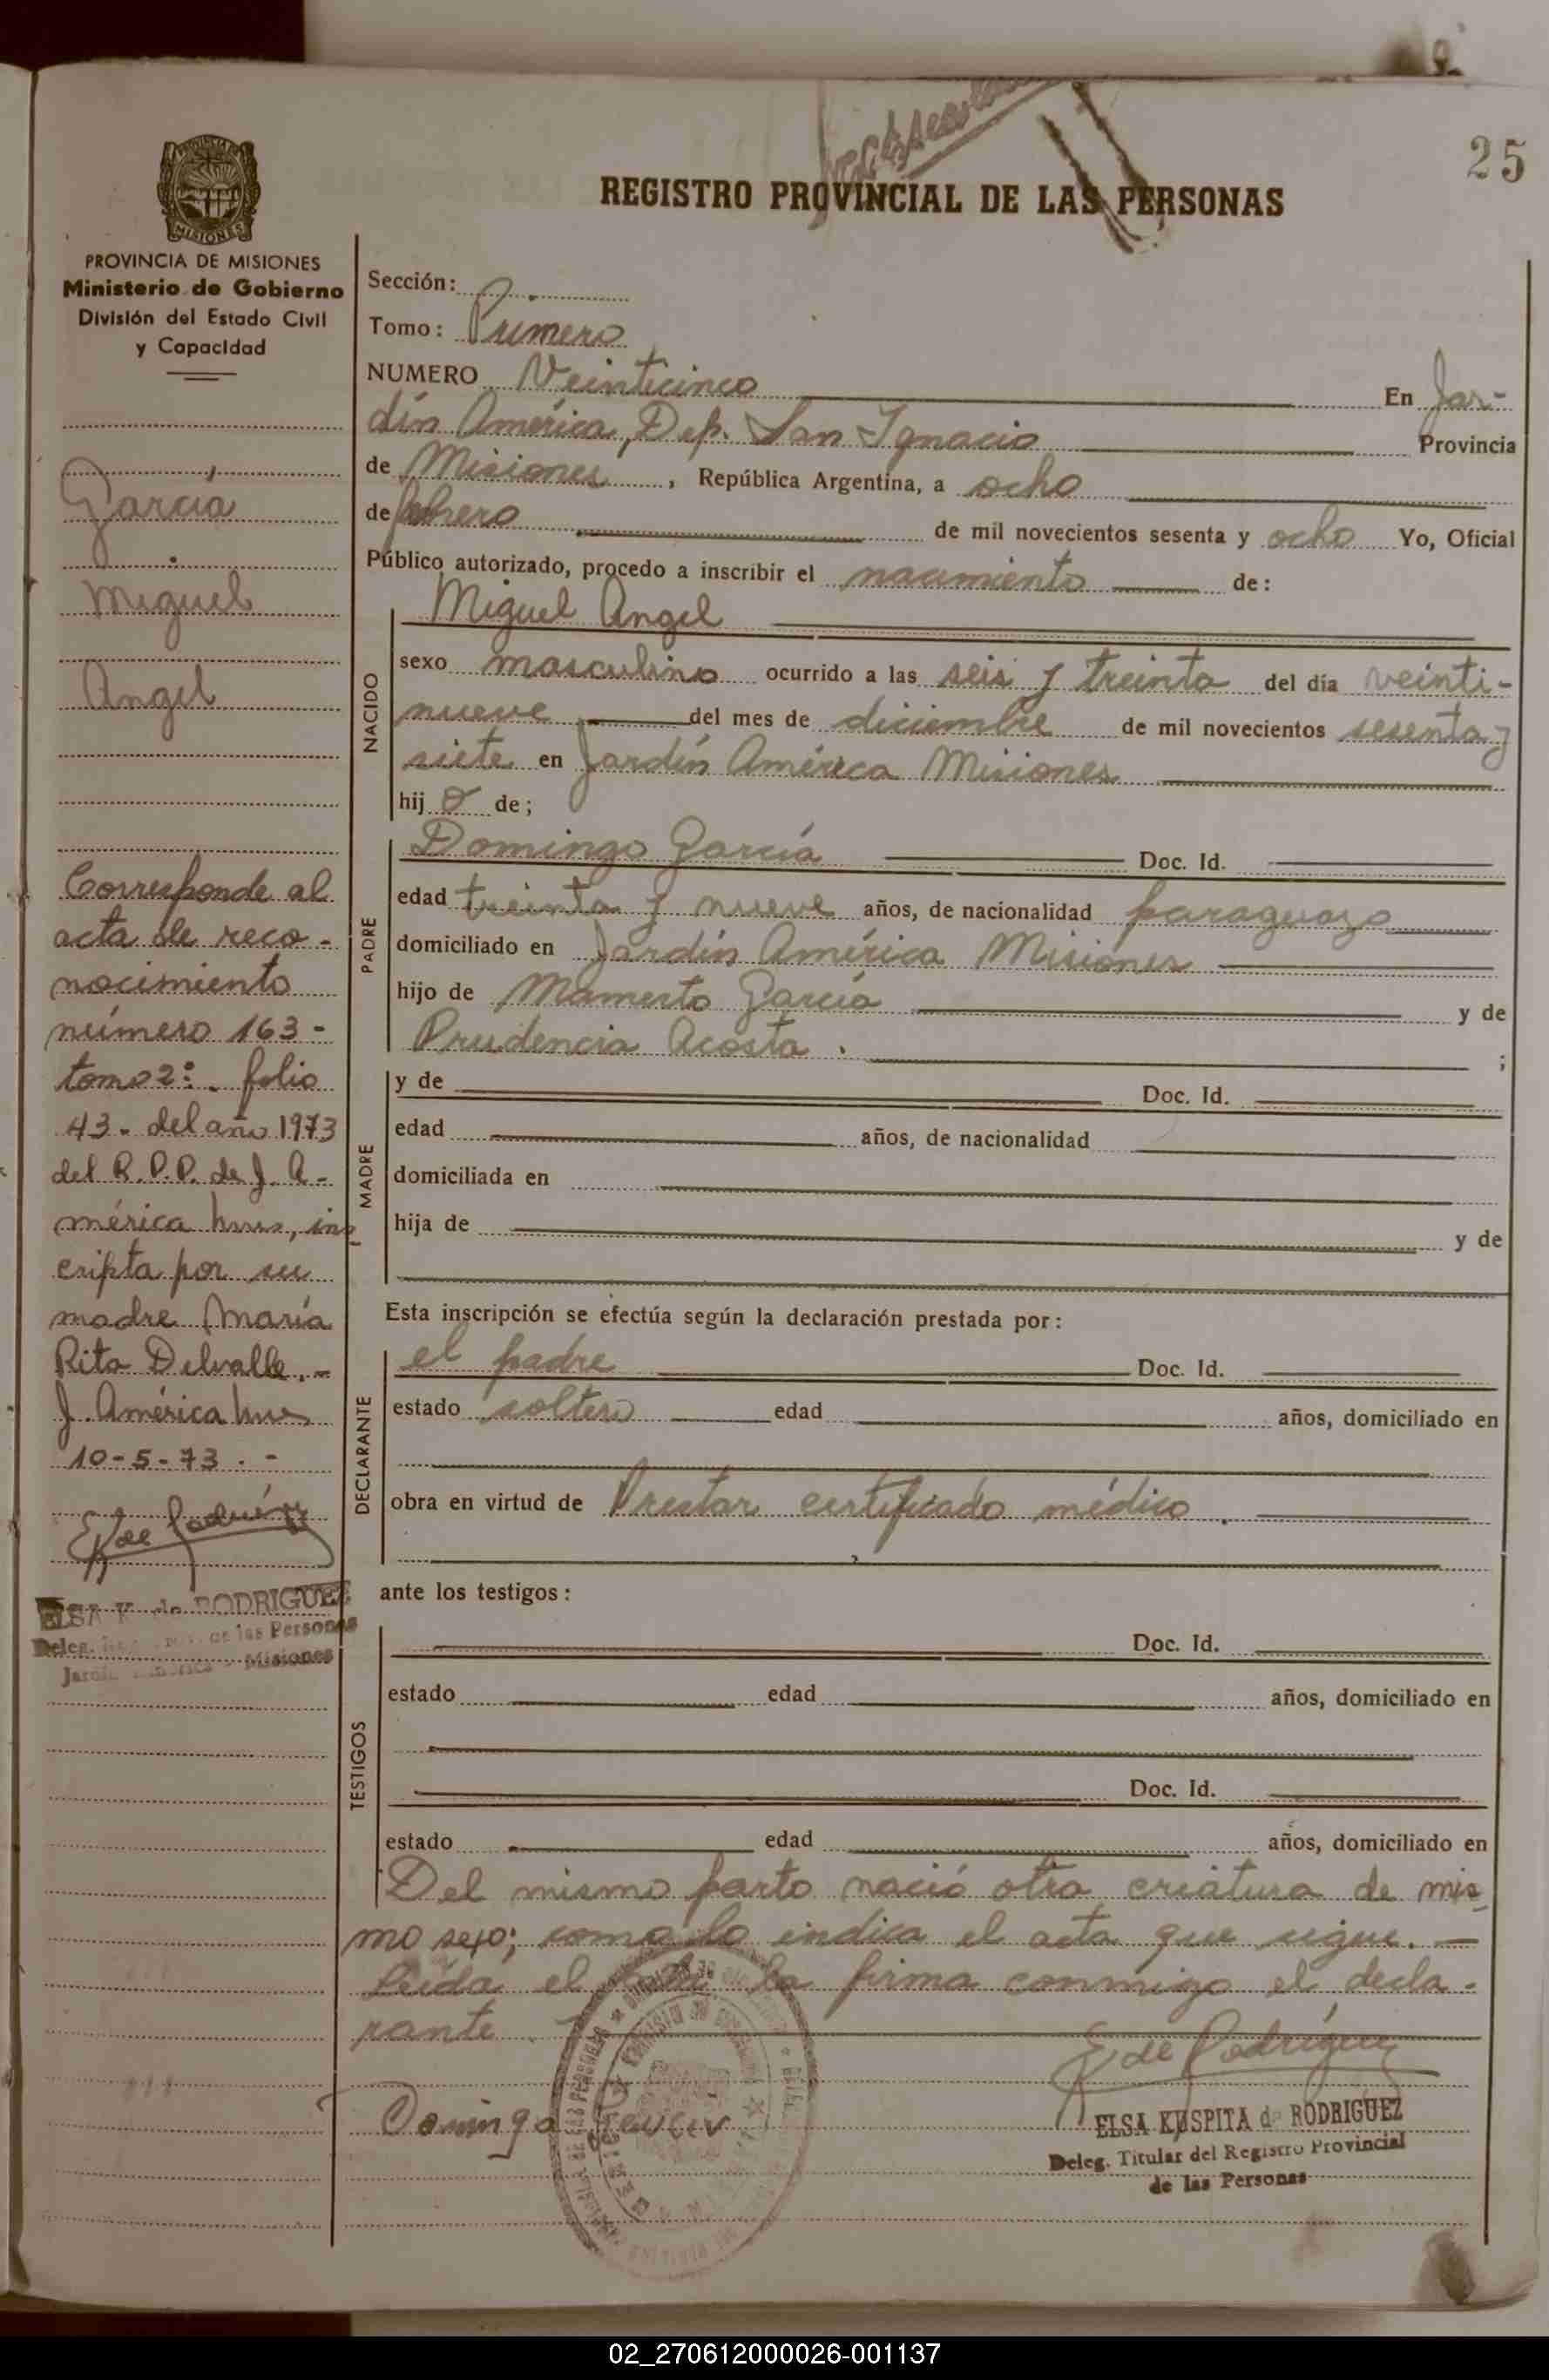 25
REGISTRO PROVINCIAL DE LAS PERSONAS
PROVINCIA DE MISIONES
Ministerio de Gobierno
División del Estado Civil
y Capacidad
García
Miguel
Angel
Corresponde al
acta de reco-
nocimiento
número 163-
tomo 2º. folio
43. del año 1973
del R.P.P. de J. A-
mérica Mnes, ins
cripta por su
madre María
Rita Delvalle.-
J. América Mnes
10-5-73.-
E K de Rodríguez
ELSA K. de RODRIGUEZ
Deleg. de las Personas
Jardín América - Misiones
Sección:
Tomo: Primero
NUMERO Veinticinco En Jar-
dín América, Dep. San Ignacio Provincia
de Misiones, República Argentina, a ocho
de febrero de mil novecientos sesenta y ocho Yo, Oficial
Público autorizado, procedo a inscribir el nacimiento de:
NACIDO
Miguel Angel
sexo masculino ocurrido a las seis y treinta del día veinti-
nueve del mes de diciembre de mil novecientos sesenta y
siete en Jardín América Misiones
hij o de;
PADRE
Domingo García Doc. Id.
edad treinta y nueve años, de nacionalidad paraguayo
domiciliado en Jardín América Misiones
hijo de Mamerto García y de
Prudencia Acosta. ;
MADRE
y de Doc. Id.
edad años, de nacionalidad
domiciliada en
hija de y de
Esta inscripción se efectúa según la declaración prestada por:
DECLARANTE
el padre Doc. Id.
estado soltero edad años, domiciliado en
obra en virtud de Prestar certificado médico.
ante los testigos:
TESTIGOS
Doc. Id.
estado edad años, domiciliado en
Doc. Id.
estado edad años, domiciliado en
Del mismo parto nació otra criatura de mis
mo sexo; como lo indica el acta que sigue.-
Leída el acta la firma conmigo el decla-
rante.
E de Rodríguez
Domingo García
ELSA KUSPITA de RODRIGUEZ
Deleg. Titular del Registro Provincial
de las Personas
02_270612000026-001137